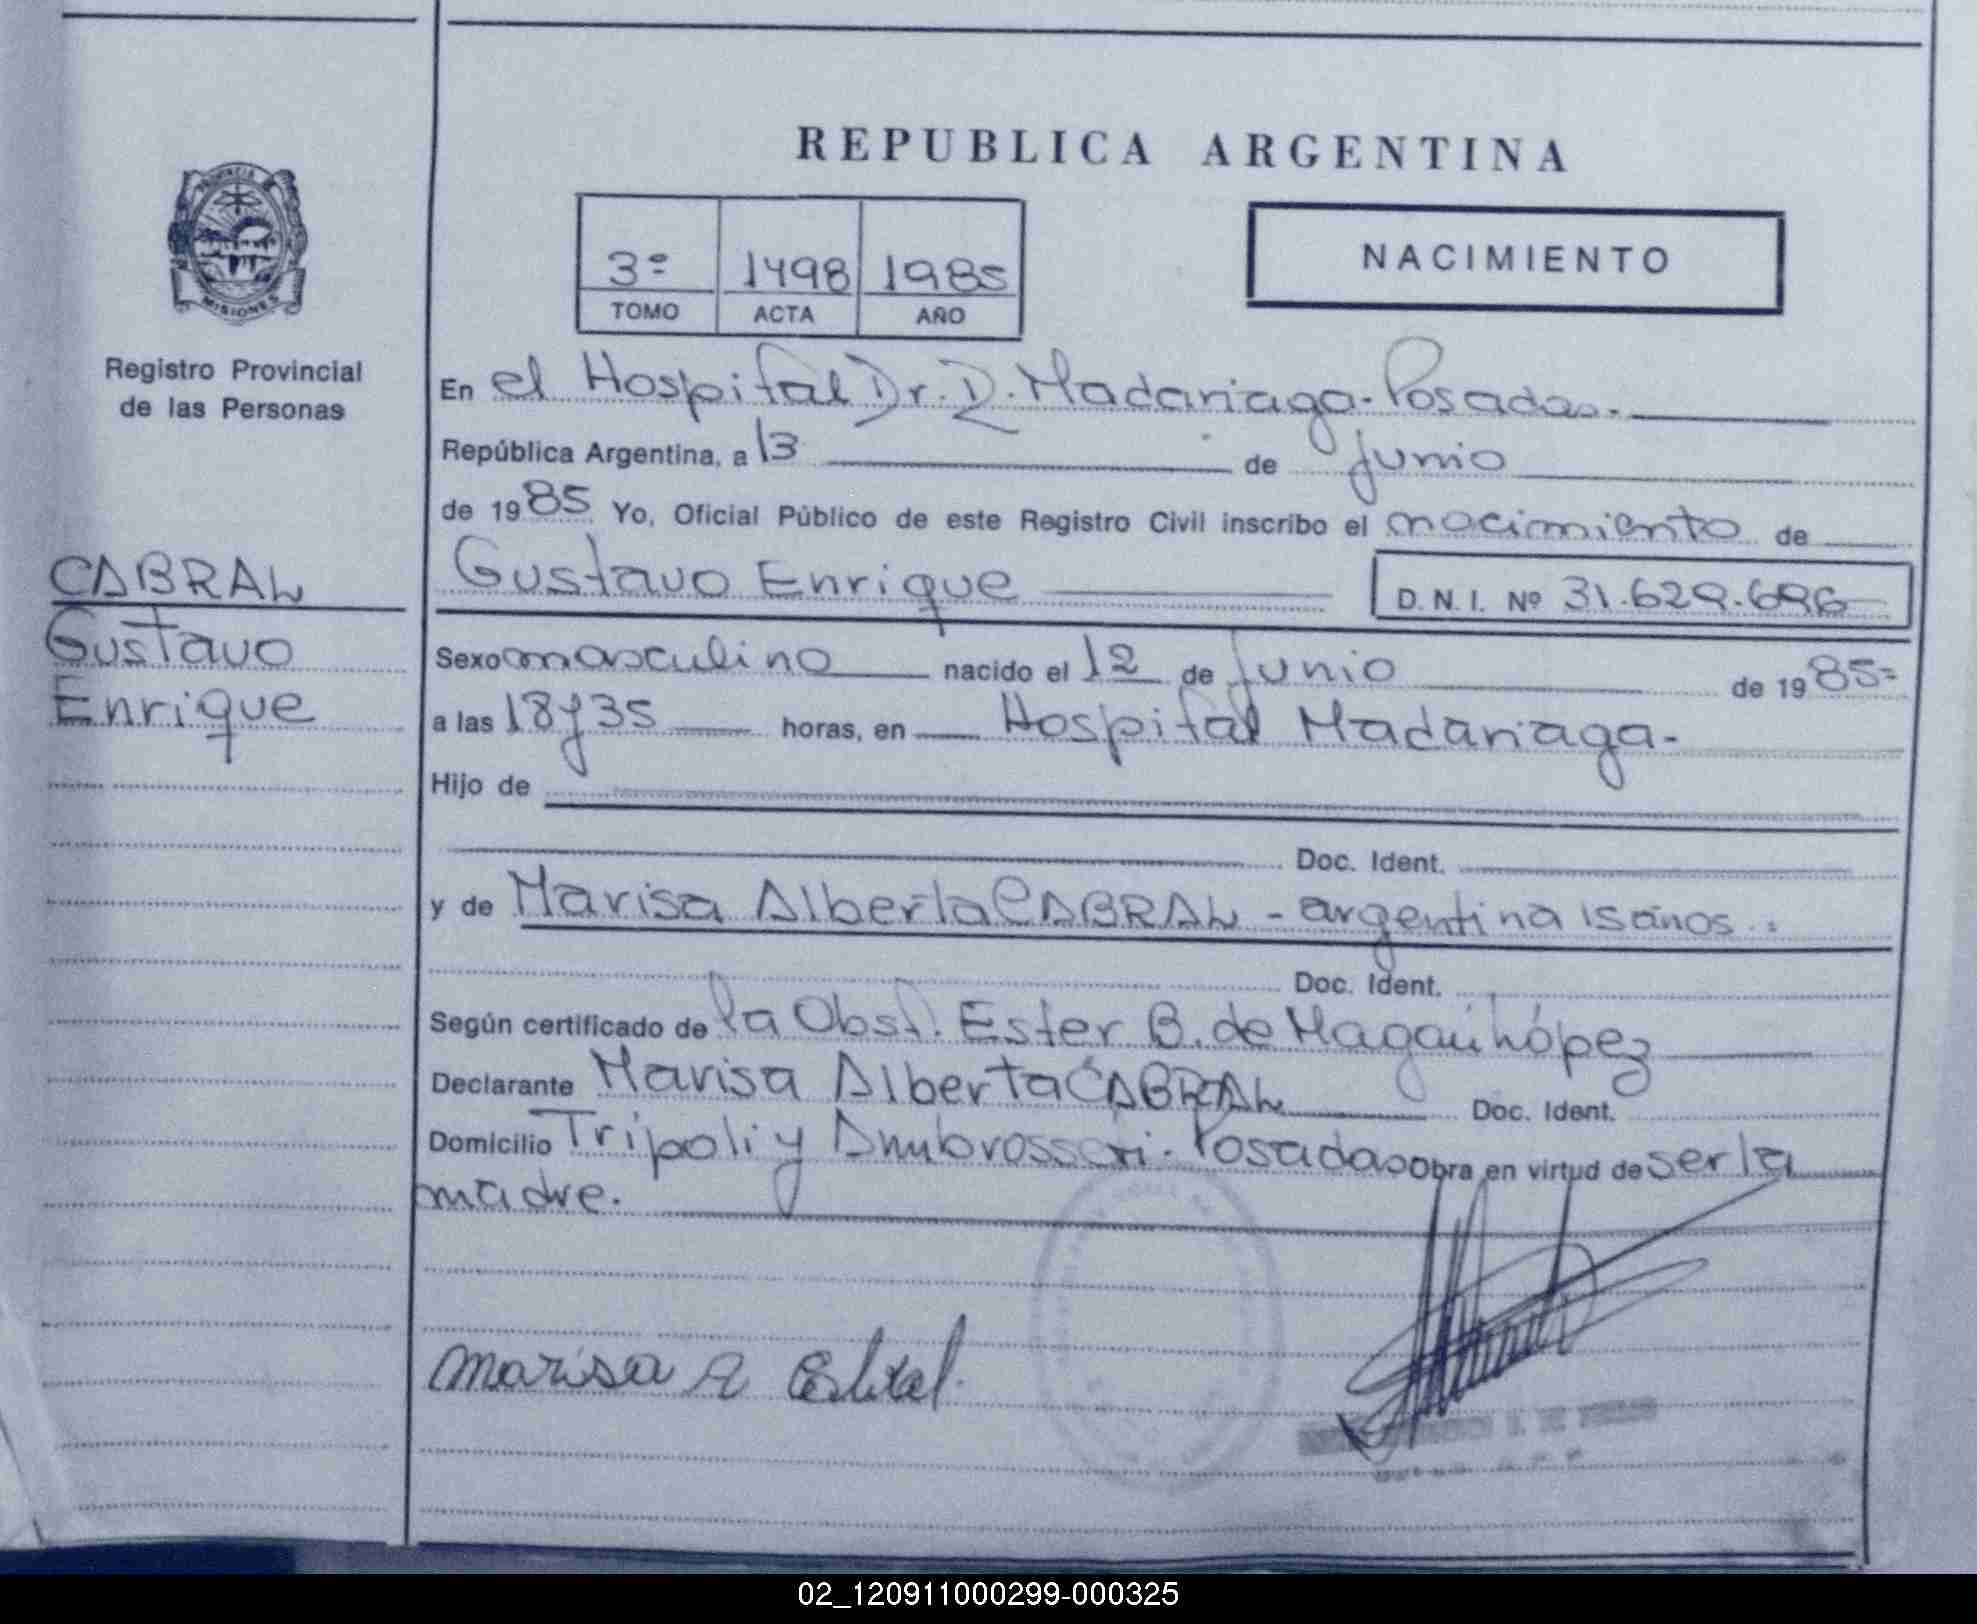 REPUBLICA ARGENTINA
PROVINCIA DE
MISIONES
Registro Provincial
de las Personas
3º 1498 1985
TOMO ACTA AÑO
NACIMIENTO
En el Hospital Dr. R. Madariaga - Posadas.
República Argentina, a 13 de junio
de 1985 Yo, Oficial Público de este Registro Civil inscribo el nacimiento de
CABRAL
Gustavo
Enrique
Gustavo Enrique D.N.I. Nº 31.629.696
Sexo masculino nacido el 12 de junio de 1985=
a las 18 y 35 horas, en Hospital Madariaga-
Hijo de
Doc. Ident.
y de Marisa Alberta CABRAL - argentina 15 años.
Doc. Ident.
Según certificado de la Obst. Ester B. de López
Declarante Marisa Alberta CABRAL Doc. Ident.
Domicilio Tripoli y Posadas Obra en virtud de ser la
madre.
Marisa A Cabral
02_120911000299-000325